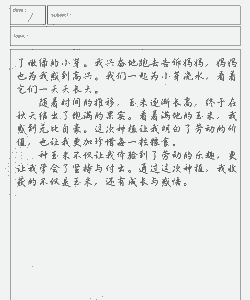 了嫩绿的小芽。我兴奋地跑去告诉妈妈，妈妈
也为我感到高兴。我们一起为小芽浇水，看着
它们一天天长大。
随着时间的推移，玉米逐渐长高，终于在
秋天结出了饱满的果实。看着满地的玉米，我
感到无比自豪。这次种植让我明白了劳动的价
值，也让我更加珍惜每一粒粮食。
种玉米不仅让我体验到了劳动的乐趣，更
让我学会了坚持与付出。通过这次种植，我收
获的不仅是玉米，还有成长与感悟。